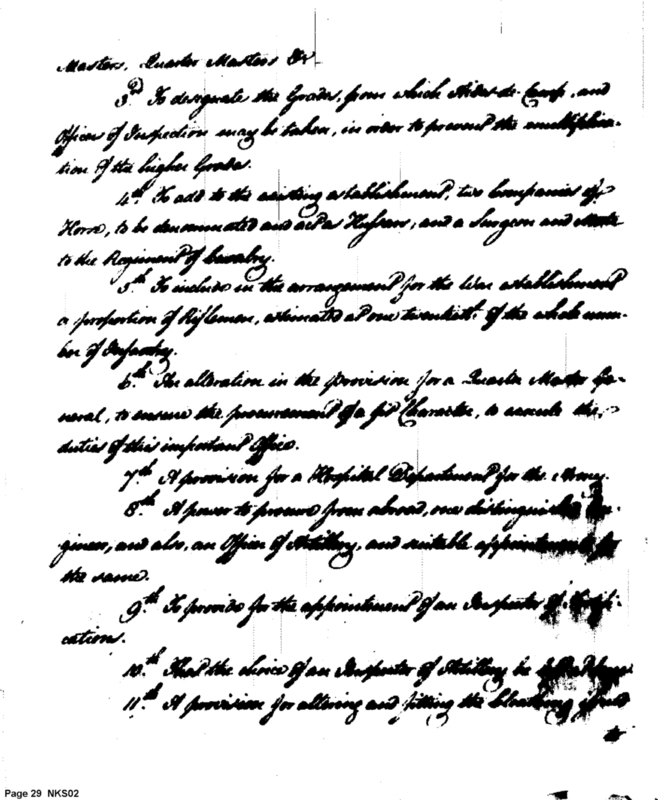 Masters, Quarter Masters &c
3d. To designate the Grades, from which Aides-de-Camp, and
Officers of Inspection may be taken, in order to prevent the multiplica-
tion of the higher Grades.
4th. To add to the existing establishment, two Companies of
Horse, to be denominated and act as Hussars; and a Surgeon and Mate
to the Regiment of Cavalry.
5th. To include in the arrangement for the War establishment
a proportion of Riflemen, estimated at one twentieth of the whole num-
ber of Infantry.
6th. An alteration in the provision for a Quarter Master Ge-
neral, to ensure the procurement of a fit Character, to execute the
duties of this important Office.
7th. A provision for a Hospital Department for the Army.
8th. A power to procure from abroad, one distinguished En-
gineer, and also, an Officer of Artillery, and suitable appointments for
the same.
9th. To provide for the appointment of an Inspector of Fortifi-
cation.
10th. That the choice of an Inspector of Artillery be
11th. A provision for altering and fitting the cloathing
to
Page 29 NKS02